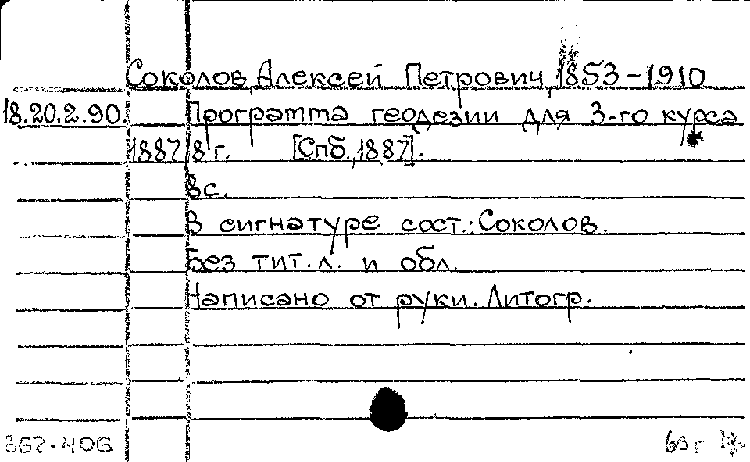 Соколов, Алексей Петрович, 1853-1910
18.20.2.90. Программа геодезии для 3-го курса
1887/8 г. [Спб., 1887].
8 с.
В сигнатуре сост.: Соколов.
Без тит. л. и обл.
Написано от руки. Литогр.
362-406